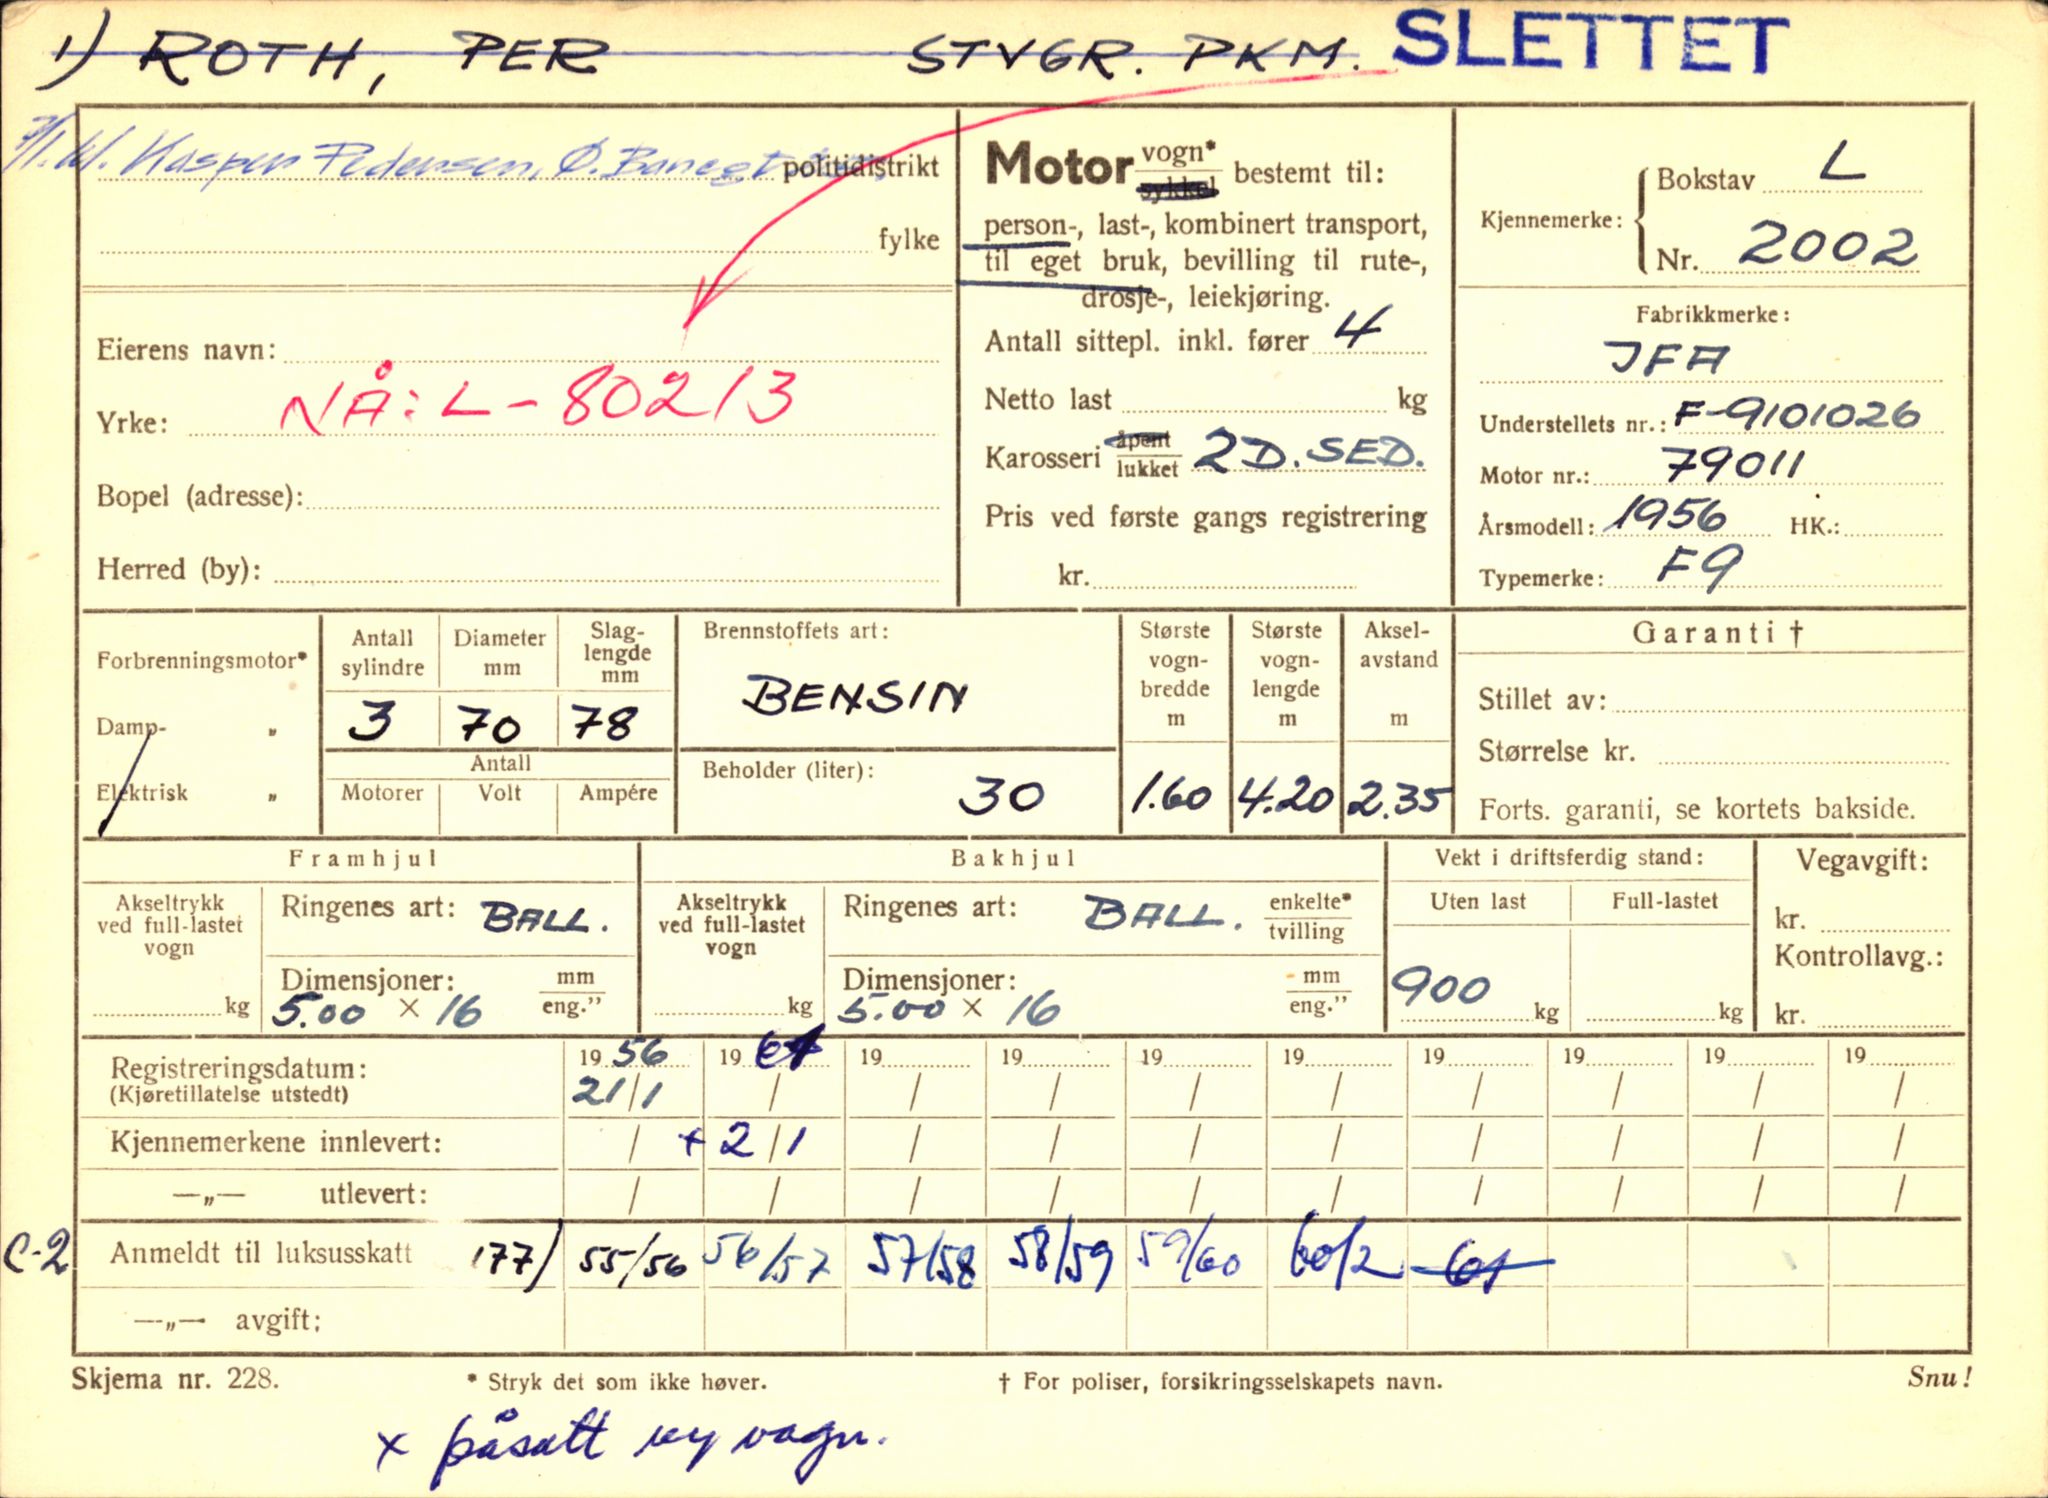 1) ROTH, PER STVGR. PKM. SLETTET
Kasper Pedersen, Ø. Banegt politidistrikt
fylke
Eierens navn:
NÅ: L-80213
Yrke:
Bopel (adresse):
Herred (by):
Motor vogn* sykkel bestemt til:
person-, last-, kombinert transport,
til eget bruk, bevilling til rute-,
drosje-, leiekjøring.
Antall sittepl. inkl. fører 4
Netto last kg
Karosseri åpent lukket 2D. SED.
Pris ved første gangs registrering
kr.
Kjennemerke: Bokstav L
Nr. 2002
Fabrikkmerke:
IFA
Understellets nr.: F-9101026
Motor nr.: 79011
Årsmodell: 1956 HK.:
Typemerke: F9
Forbrenningsmotor*
Damp- „
Elektrisk „
Antall sylindre 3
Diameter mm 70
Slag-lengde mm 78
Antall
Motorer Volt Ampére
Brennstoffets art:
BENSIN
Beholder (liter): 30
Største vogn-bredde m 1.60
Største vogn-lengde m 4.20
Aksel-avstand m 2.35
Garanti †
Stillet av:
Størrelse kr.
Forts. garanti, se kortets bakside.
Framhjul
Akseltrykk ved full-lastet vogn kg
Ringenes art: BALL.
Dimensjoner: mm eng."
5.00 × 16
Bakhjul
Akseltrykk ved full-lastet vogn kg
Ringenes art: BALL. enkelte* tvilling
Dimensjoner: mm eng."
5.00 × 16
Vekt i driftsferdig stand:
Uten last Full-lastet
900 kg kg
Vegavgift:
kr.
Kontrollavg.:
kr.
Registreringsdatum: 19 56 19 61 19 19 19 19 19 19 19 19
(Kjøretillatelse utstedt) 21/1 / / / / / / / / /
Kjennemerkene innlevert: / + 2/1 / / / / / / / /
—„— utlevert: / / / / / / / / / /
C-2 Anmeldt til luksusskatt 177) 55/56 56/57 57/58 58/59 59/60 60/2 61
—„— avgift:
Skjema nr. 228. * Stryk det som ikke høver. † For poliser, forsikringsselskapets navn. Snu!
x påsatt ny vogn.